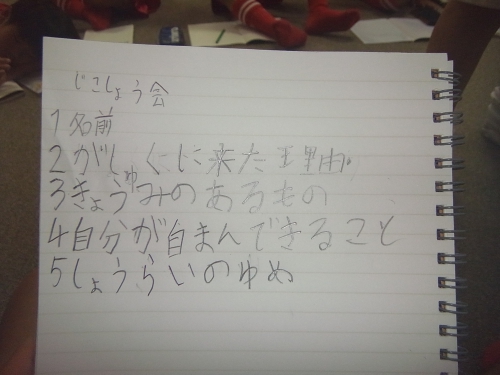 じこしょう会
1 名前
2 がしゅくに来た理由。
3 きょうみのあるもの
4 自分が自まんできること
5 しょうらいのゆめ